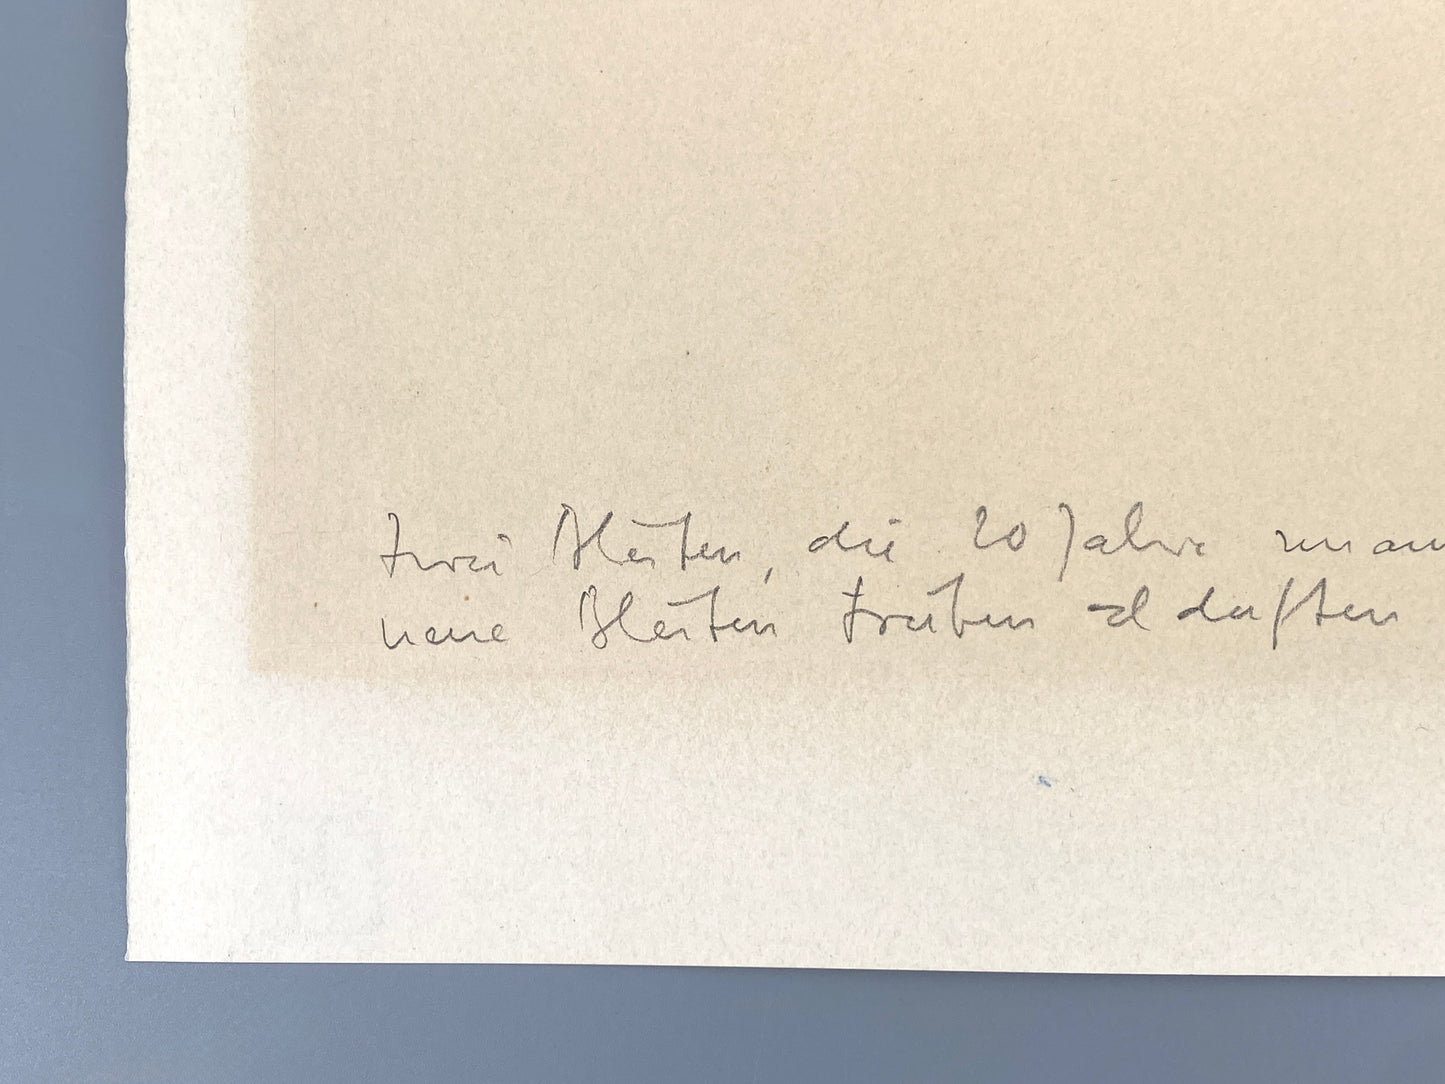 zwei Blüten, die 20 Jahre
neue Blüten treiben + duften